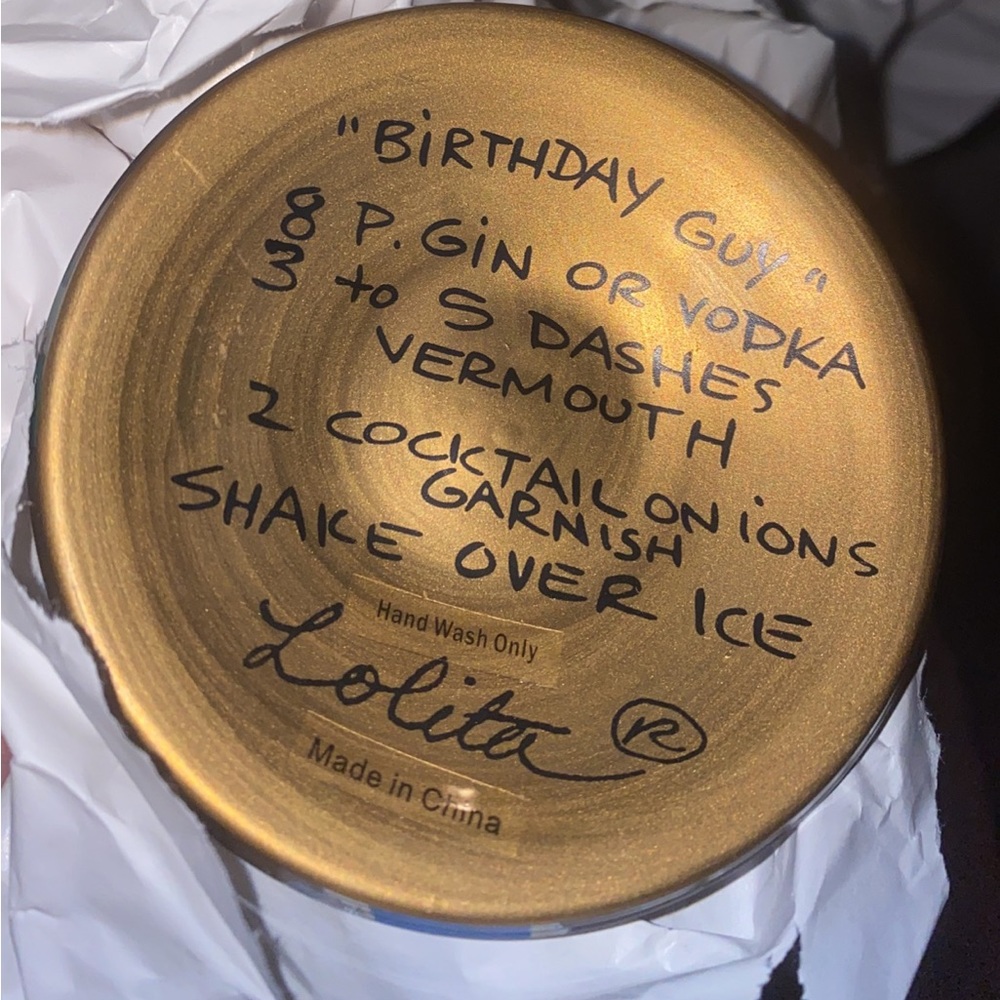 "BiRTHDAY GUY"
8 P. GiN OR VODKA
3 to 5 DASHES
VERMOUTH
2 COCKTAIL ONiONS
GARNiSH
SHAKE OVER ICE
Hand Wash Only
Lolita ®
Made in China